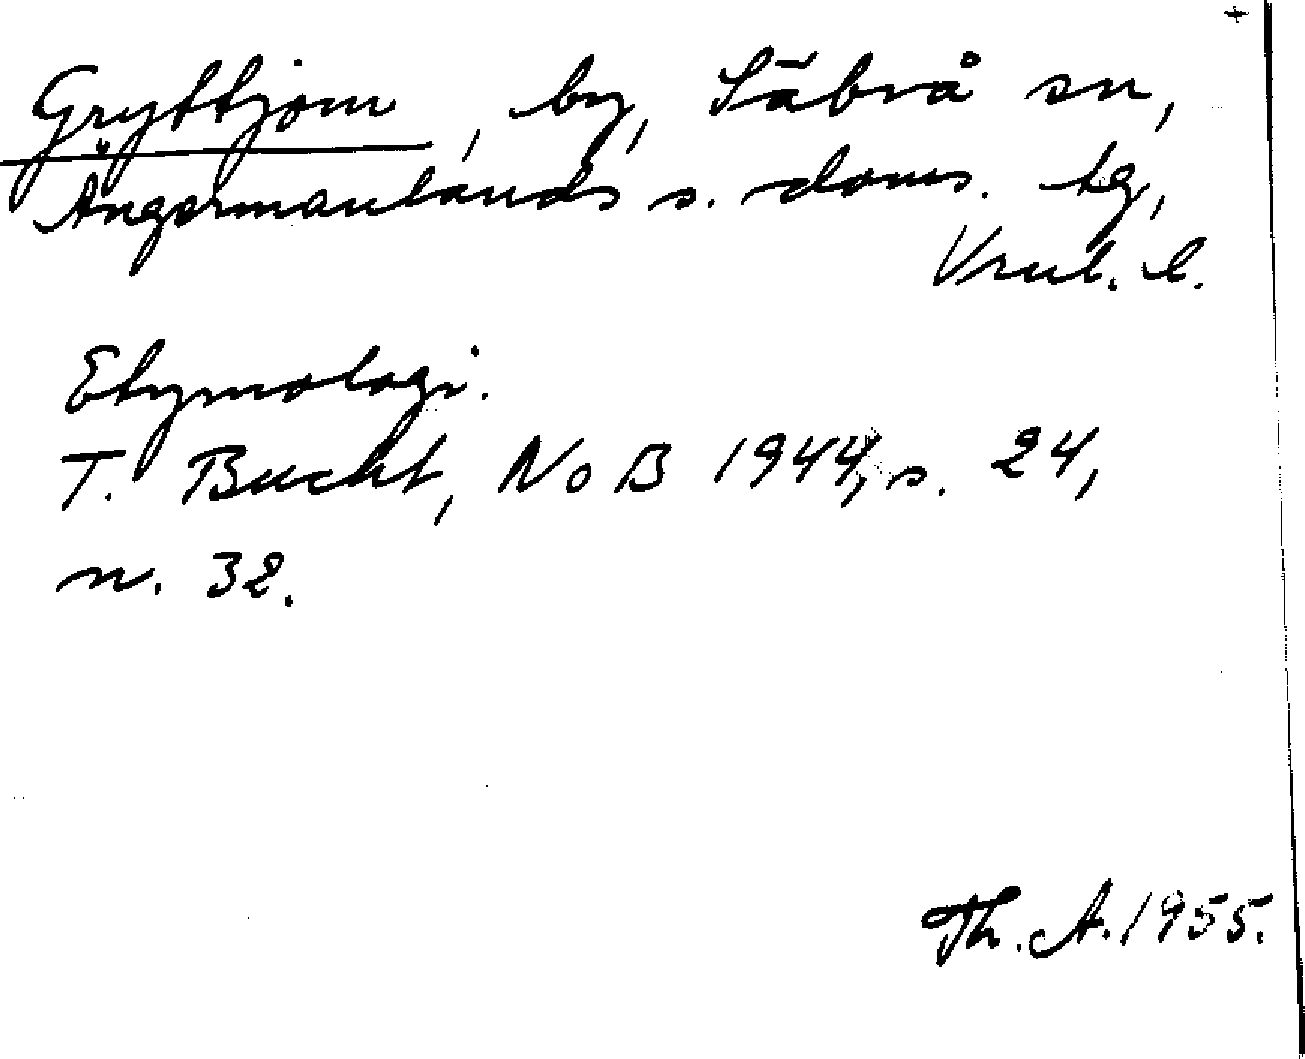 +
Gryttjom, by, Säbrå sn,
Ångermanlands s. doms. tg,
Vnl. l.
Etymologi.
T. Bucht, NoB 1944, s. 24,
n. 32.
Th. A. 1955.